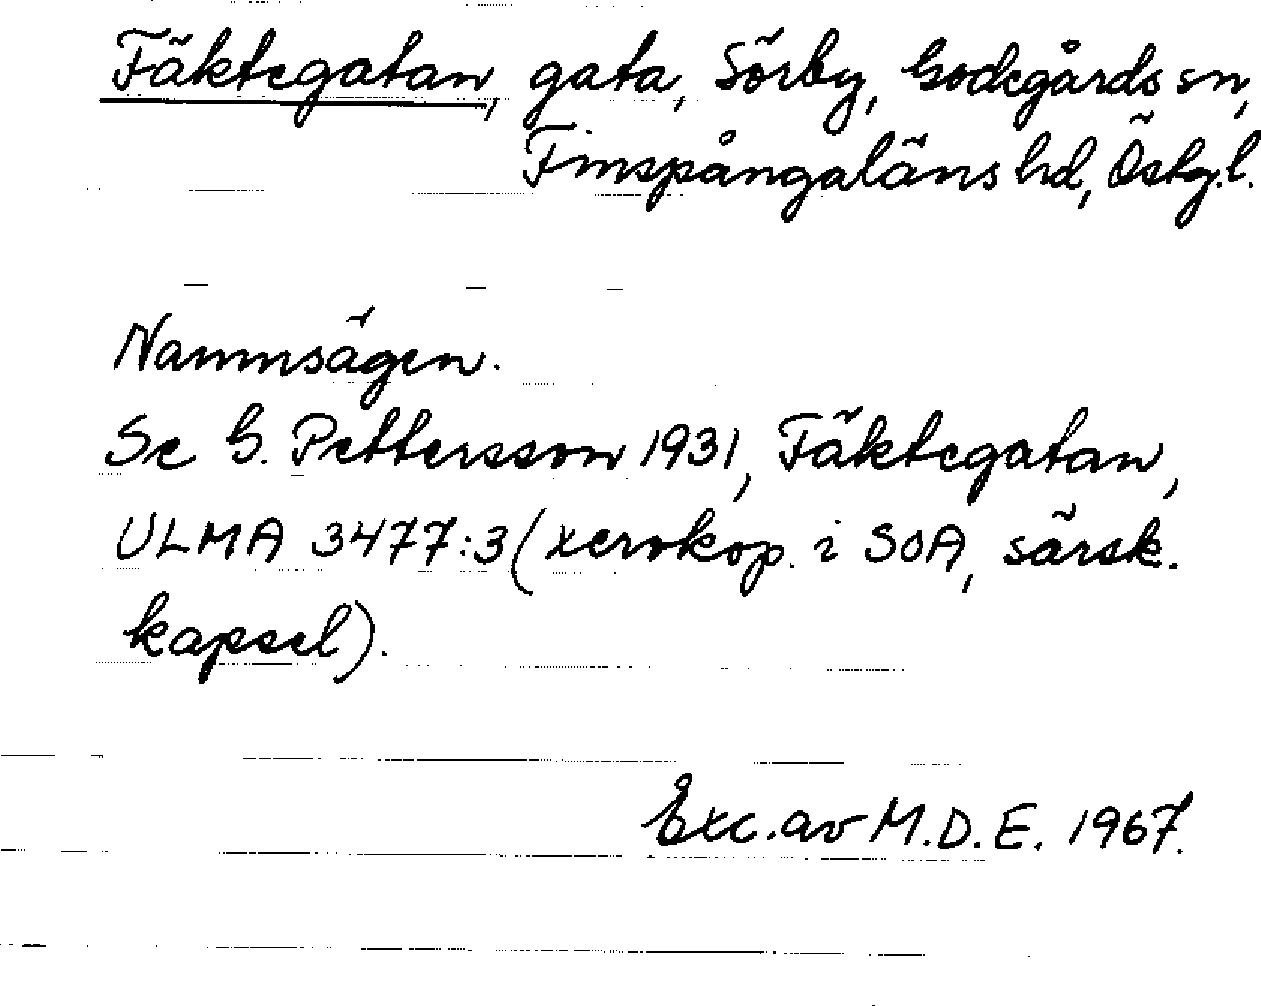 Fäktegatan, gata, Sörby, Godegårds sn,
Finspångaläns hd, Östg.l.
Namnsägen.
Se G. Pettersson 1931, Fäktegatan,
ULMA 3477:3 (xerokop. i SOA, särsk.
kapsel).
Exc. av M.D.E. 1967.